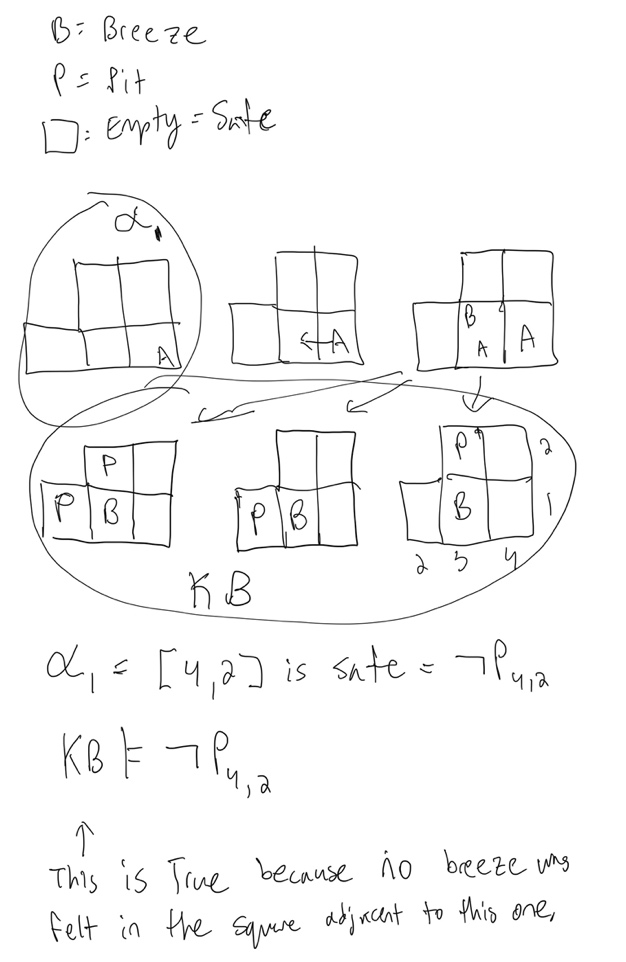 B = Breeze
P = Pit
□: Empty = Safe
α₁
A
←A
B
A
A
P
P B
P B
P 2
B 1
2 3 4
KB
α₁ = [4,2] is safe = ¬P₄,₂
KB ⊨ ¬P₄,₂
↑
This is True because no breeze was
felt in the square adjacent to this one,